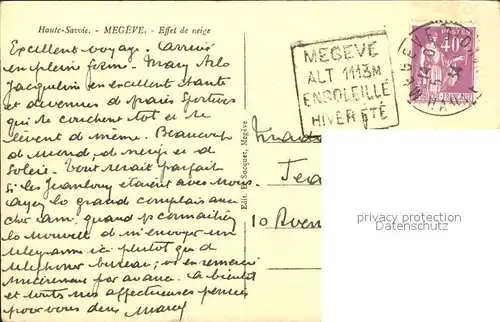 Haute-Savoie. - MEGÈVE. - Effet de neige
Excellent voyage. Arrivé
en plein forme. Mary Arlo
Jacqueline en excellent santé
et devenues de vraies Sportives
qui se couchent tot et se
lèvent de même. Beaucoup
de Monde, de neige et de
Soleil. Tout serait parfait
Si les Jeanlouy étaient avec nous.
ayez la grande complaisance
cher ami, quand p connaitrez
la nouvelle de m'envoyer un
télégramme ici plutot que de
téléphoner bureau; vs en remercie
sincèrement par avance. A bientôt
et toutes nos affectueuses pensées
pour vous deux Marcy
Edit. H. Socquet, Megève
MEGEVE
ALT 1113M
ENSOLEILLÉ
HIVER ÉTÉ
POSTES
40c
MEGEVE
34
10 Avenue
privacy protection
Datenschutz